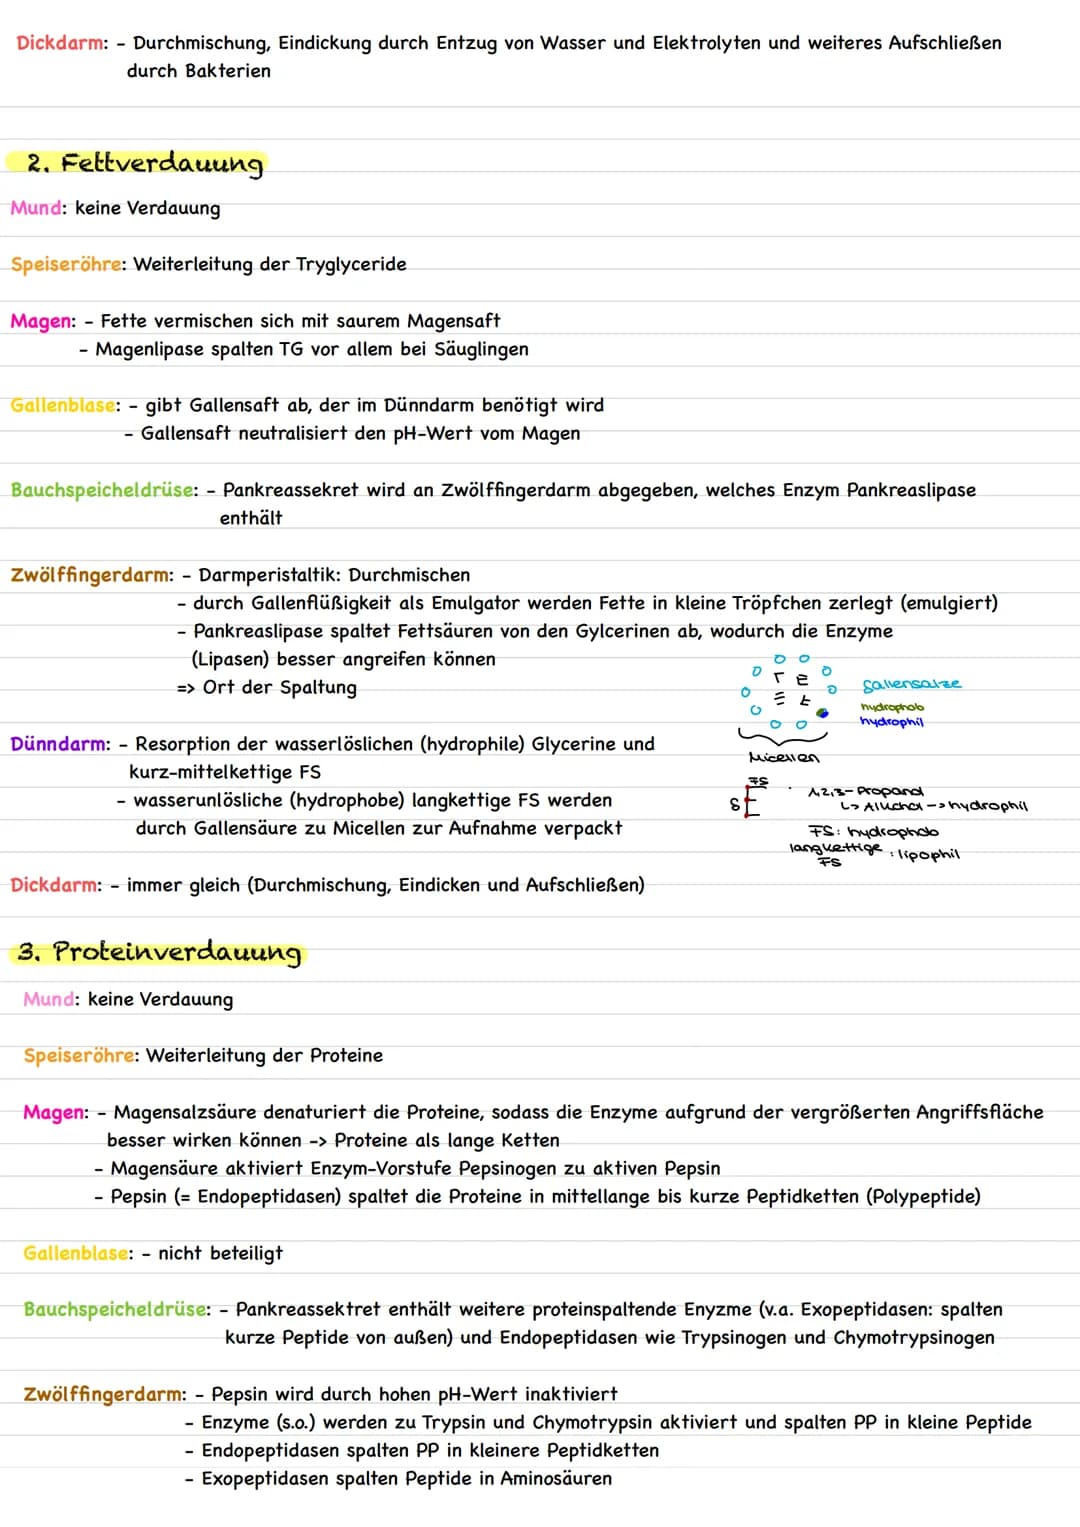 Dickdarm: - Durchmischung, Eindickung durch Entzug von Wasser und Elektrolyten und weiteres Aufschließen
durch Bakterien
2. Fettverdauung
Mund: keine Verdauung
Speiseröhre: Weiterleitung der Tryglyceride
Magen: - Fette vermischen sich mit saurem Magensaft
- Magenlipase spalten TG vor allem bei Säuglingen
Gallenblase: - gibt Gallensaft ab, der im Dünndarm benötigt wird
- Gallensaft neutralisiert den pH-Wert vom Magen
Bauchspeicheldrüse: - Pankreassekret wird an Zwölffingerdarm abgegeben, welches Enzym Pankreaslipase
enthält
Zwölffingerdarm: - Darmperistaltik: Durchmischen
- durch Gallenflüßigkeit als Emulgator werden Fette in kleine Tröpfchen zerlegt (emulgiert)
- Pankreaslipase spaltet Fettsäuren von den Gylcerinen ab, wodurch die Enzyme
(Lipasen) besser angreifen können
=> Ort der Spaltung
Gallensalze
hydrophob
hydrophil
Micellen
Dünndarm: - Resorption der wasserlöslichen (hydrophile) Glycerine und
kurz-mittelkettige FS
- wasserunlösliche (hydrophobe) langkettige FS werden
durch Gallensäure zu Micellen zur Aufnahme verpackt
FS
1,2,3-Propanol
-> hydrophil
FS: hydrophob
langkettige FS : lipophil
Dickdarm: - immer gleich (Durchmischung, Eindicken und Aufschließen)
3. Proteinverdauung
Mund: keine Verdauung
Speiseröhre: Weiterleitung der Proteine
Magen: - Magensalzsäure denaturiert die Proteine, sodass die Enzyme aufgrund der vergrößerten Angriffsfläche
besser wirken können -> Proteine als lange Ketten
- Magensäure aktiviert Enzym-Vorstufe Pepsinogen zu aktiven Pepsin
- Pepsin (= Endopeptidasen) spaltet die Proteine in mittellange bis kurze Peptidketten (Polypeptide)
Gallenblase: - nicht beteiligt
Bauchspeicheldrüse: - Pankreassektret enthält weitere proteinspaltende Enyzme (v.a. Exopeptidasen: spalten
kurze Peptide von außen) und Endopeptidasen wie Trypsinogen und Chymotrypsinogen
Zwölffingerdarm: - Pepsin wird durch hohen pH-Wert inaktiviert
- Enzyme (s.o.) werden zu Trypsin und Chymotrypsin aktiviert und spalten PP in kleine Peptide
- Endopeptidasen spalten PP in kleinere Peptidketten
- Exopeptidasen spalten Peptide in Aminosäuren